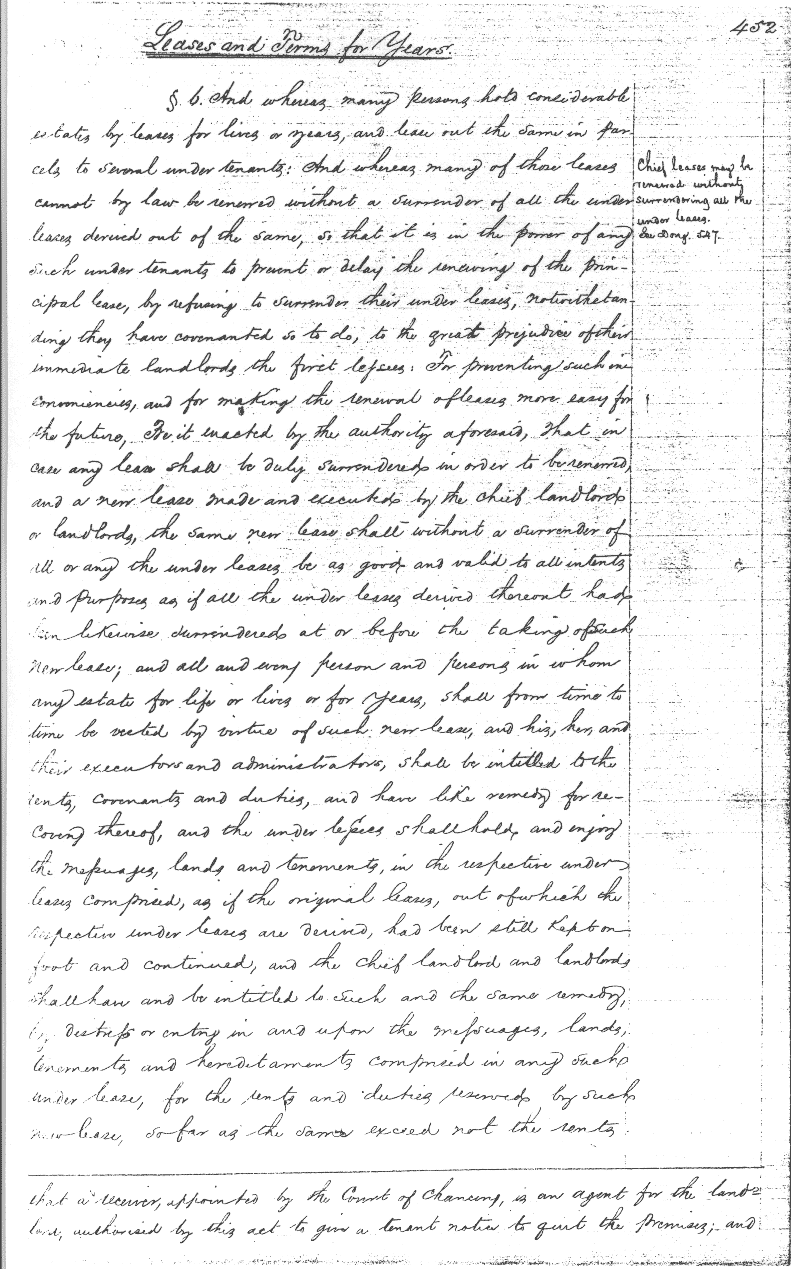 452
Leases and Terms for Years.
§. 6. And whereas many persons hold considerable
estates by leases for lives or years, and lease out the same in par-
cels to several under tenants: And whereas many of those leases
cannot by law be renewed without a surrender of all the under
leases derived out of the same, so that it is in the power of any
such under tenants to prevent or delay the renewing of the prin-
cipal lease, by refusing to surrender their under leases, notwithstan-
ding they have covenanted so to do, to the great prejudice of their
immediate landlords the first lessees: For preventing such in-
conveniencies, and for making the renewal of leases more easy for
the future, Be it enacted by the authority aforesaid, That in
case any lease shall be duly surrendered in order to be renewed,
and a new lease made and executed by the chief landlord
or landlords, the same new lease shall without a surrender of
all or any the under leases be as good and valid to all intents
and purposes as if all the under leases derived thereout had
been likewise surrendered at or before the taking of such
new lease; and all and every person and persons in whom
any estate for life or lives or for years, shall from time to
time be vested by virtue of such new lease, and his, her, and
their executors and administrators, shall be intitled to the
rents, covenants and duties, and have like remedy for re-
covery thereof, and the under lessees shall hold, and enjoy
the messuages, lands and tenements, in the respective under
leases comprised, as if the original leases, out of which the
respective under leases are derived, had been still kept on
foot and continued, and the chief landlord and landlords
shall have and be intitled to such and the same remedy,
by distress or entry in and upon the messuages, lands,
tenements and hereditaments comprised in any such
under lease, for the rents and duties reserved by such
new lease, so far as the same exceed not the rents
Chief leases may be
renewed without
surrendering all the
under leases.
See Doug. 547.
that a receiver, appointed by the Court of Chancery, is an agent for the land=
lord, authorised by this act to give a tenant notice to quit the premises; and